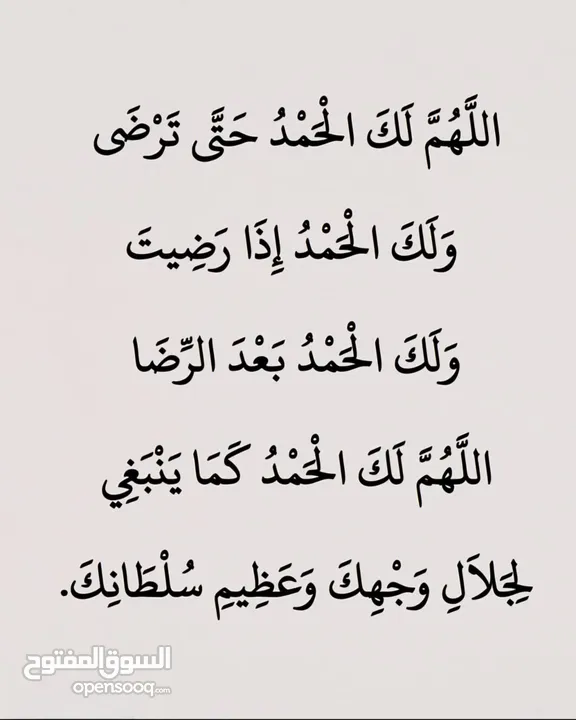 اللَّهُمَّ لَكَ الْحَمْدُ حَتَّى تَرْضَى
وَلَكَ الْحَمْدُ إِذَا رَضِيتَ
وَلَكَ الْحَمْدُ بَعْدَ الرِّضَا
اللَّهُمَّ لَكَ الْحَمْدُ كَمَا يَنْبَغِي
لِجَلاَلِ وَجْهِكَ وَعَظِيمِ سُلْطَانِكَ.
السوق المفتوح
opensooq.com